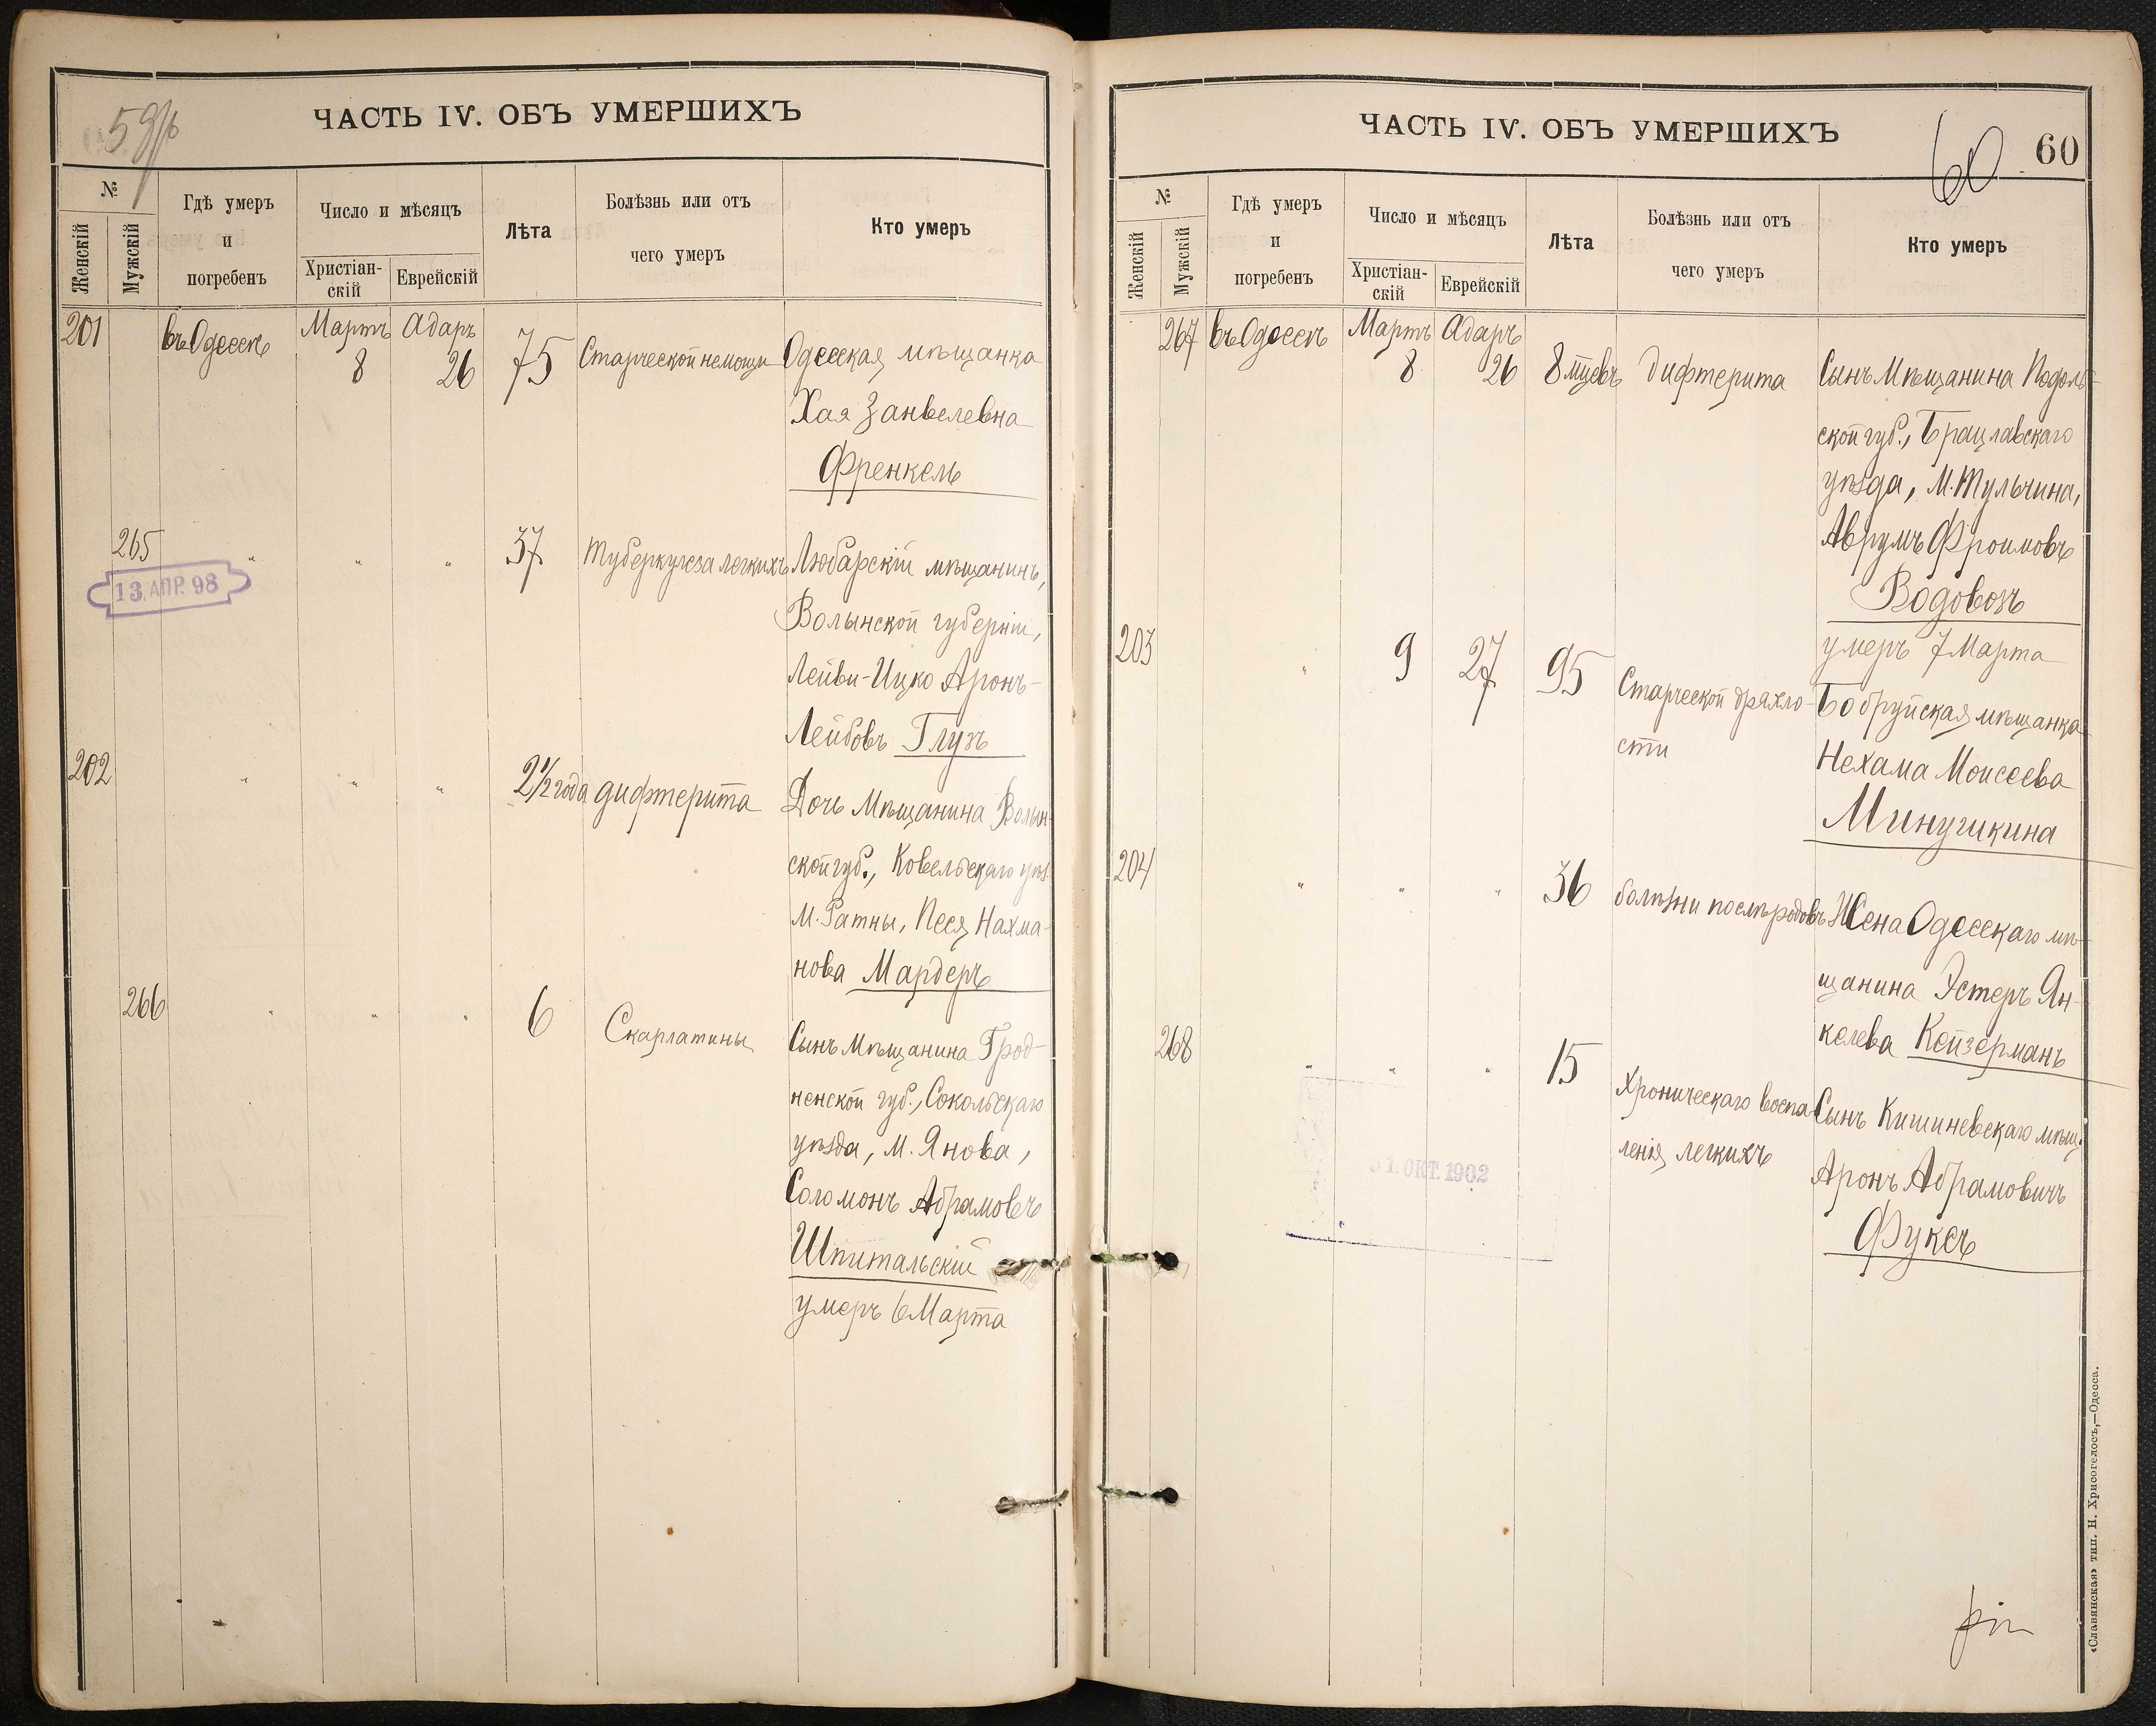 59
ЧАСТЬ IV. ОБЪ УМЕРШИХЪ
№
Женскій
Мужскій
Гдѣ умеръ
и
погребенъ
Число и мѣсяцъ
Христіан-
скій
Еврейскій
Лѣта
Болѣзнь или отъ
чего умеръ
Кто умеръ
201 въ Одессѣ Мартъ 8 Адаръ 26 75 Старческой немощи Одесская мѣщанка
Хая Занвелевна
Френкель
265 " " " 37 Туберкулеза легкихъ Любарскій мѣщанинъ,
Волынской губерніи,
Лейви-Ицко Аронъ-
Лейбовъ Глузъ
13. АПР. 98
202 " " " 2 1/2 года дифтерита Дочь Мѣщанина Волын-
ской губ., Ковельскаго уѣз.
М. Ратны, Песя Нахма-
нова Мардеръ
266 " " " 6 Скарлатины Сынъ Мѣщанина Грод-
ненской губ., Сокольскаго
уѣзда, М. Янова,
Соломонъ Абрамовъ
Шпитальскій
умеръ 6 Марта
ЧАСТЬ IV. ОБЪ УМЕРШИХЪ
60
60
№
Женскій
Мужскій
Гдѣ умеръ
и
погребенъ
Число и мѣсяцъ
Христіан-
скій
Еврейскій
Лѣта
Болѣзнь или отъ
чего умеръ
Кто умеръ
267 въ Одессѣ Мартъ 8 Адаръ 26 8 мцевъ дифтерита Сынъ Мѣщанина Подоль-
ской губ., Брацлавскаго
уѣзда, М. Тульчина,
Аврумъ Фроимовъ
Водовозъ
умеръ 7 Марта
203 " 9 27 95 Старческой дряхло-
сти
Бобруйская мѣщанка
Нехама Моисеева
Минушкина
204 " " " 36 болѣзни послѣ родовъ Жена Одесскаго мѣ-
щанина Эстеръ Ян-
келева Кейзерманъ
268 " " " 15 Хроническаго воспа-
ленія легкихъ
Сынъ Кишиневскаго мѣщ.
Аронъ Абрамовичъ
Фуксъ
31 ОКТ. 1902
«Славянская» тип. Н. Хрисогелосъ,—Одесса.